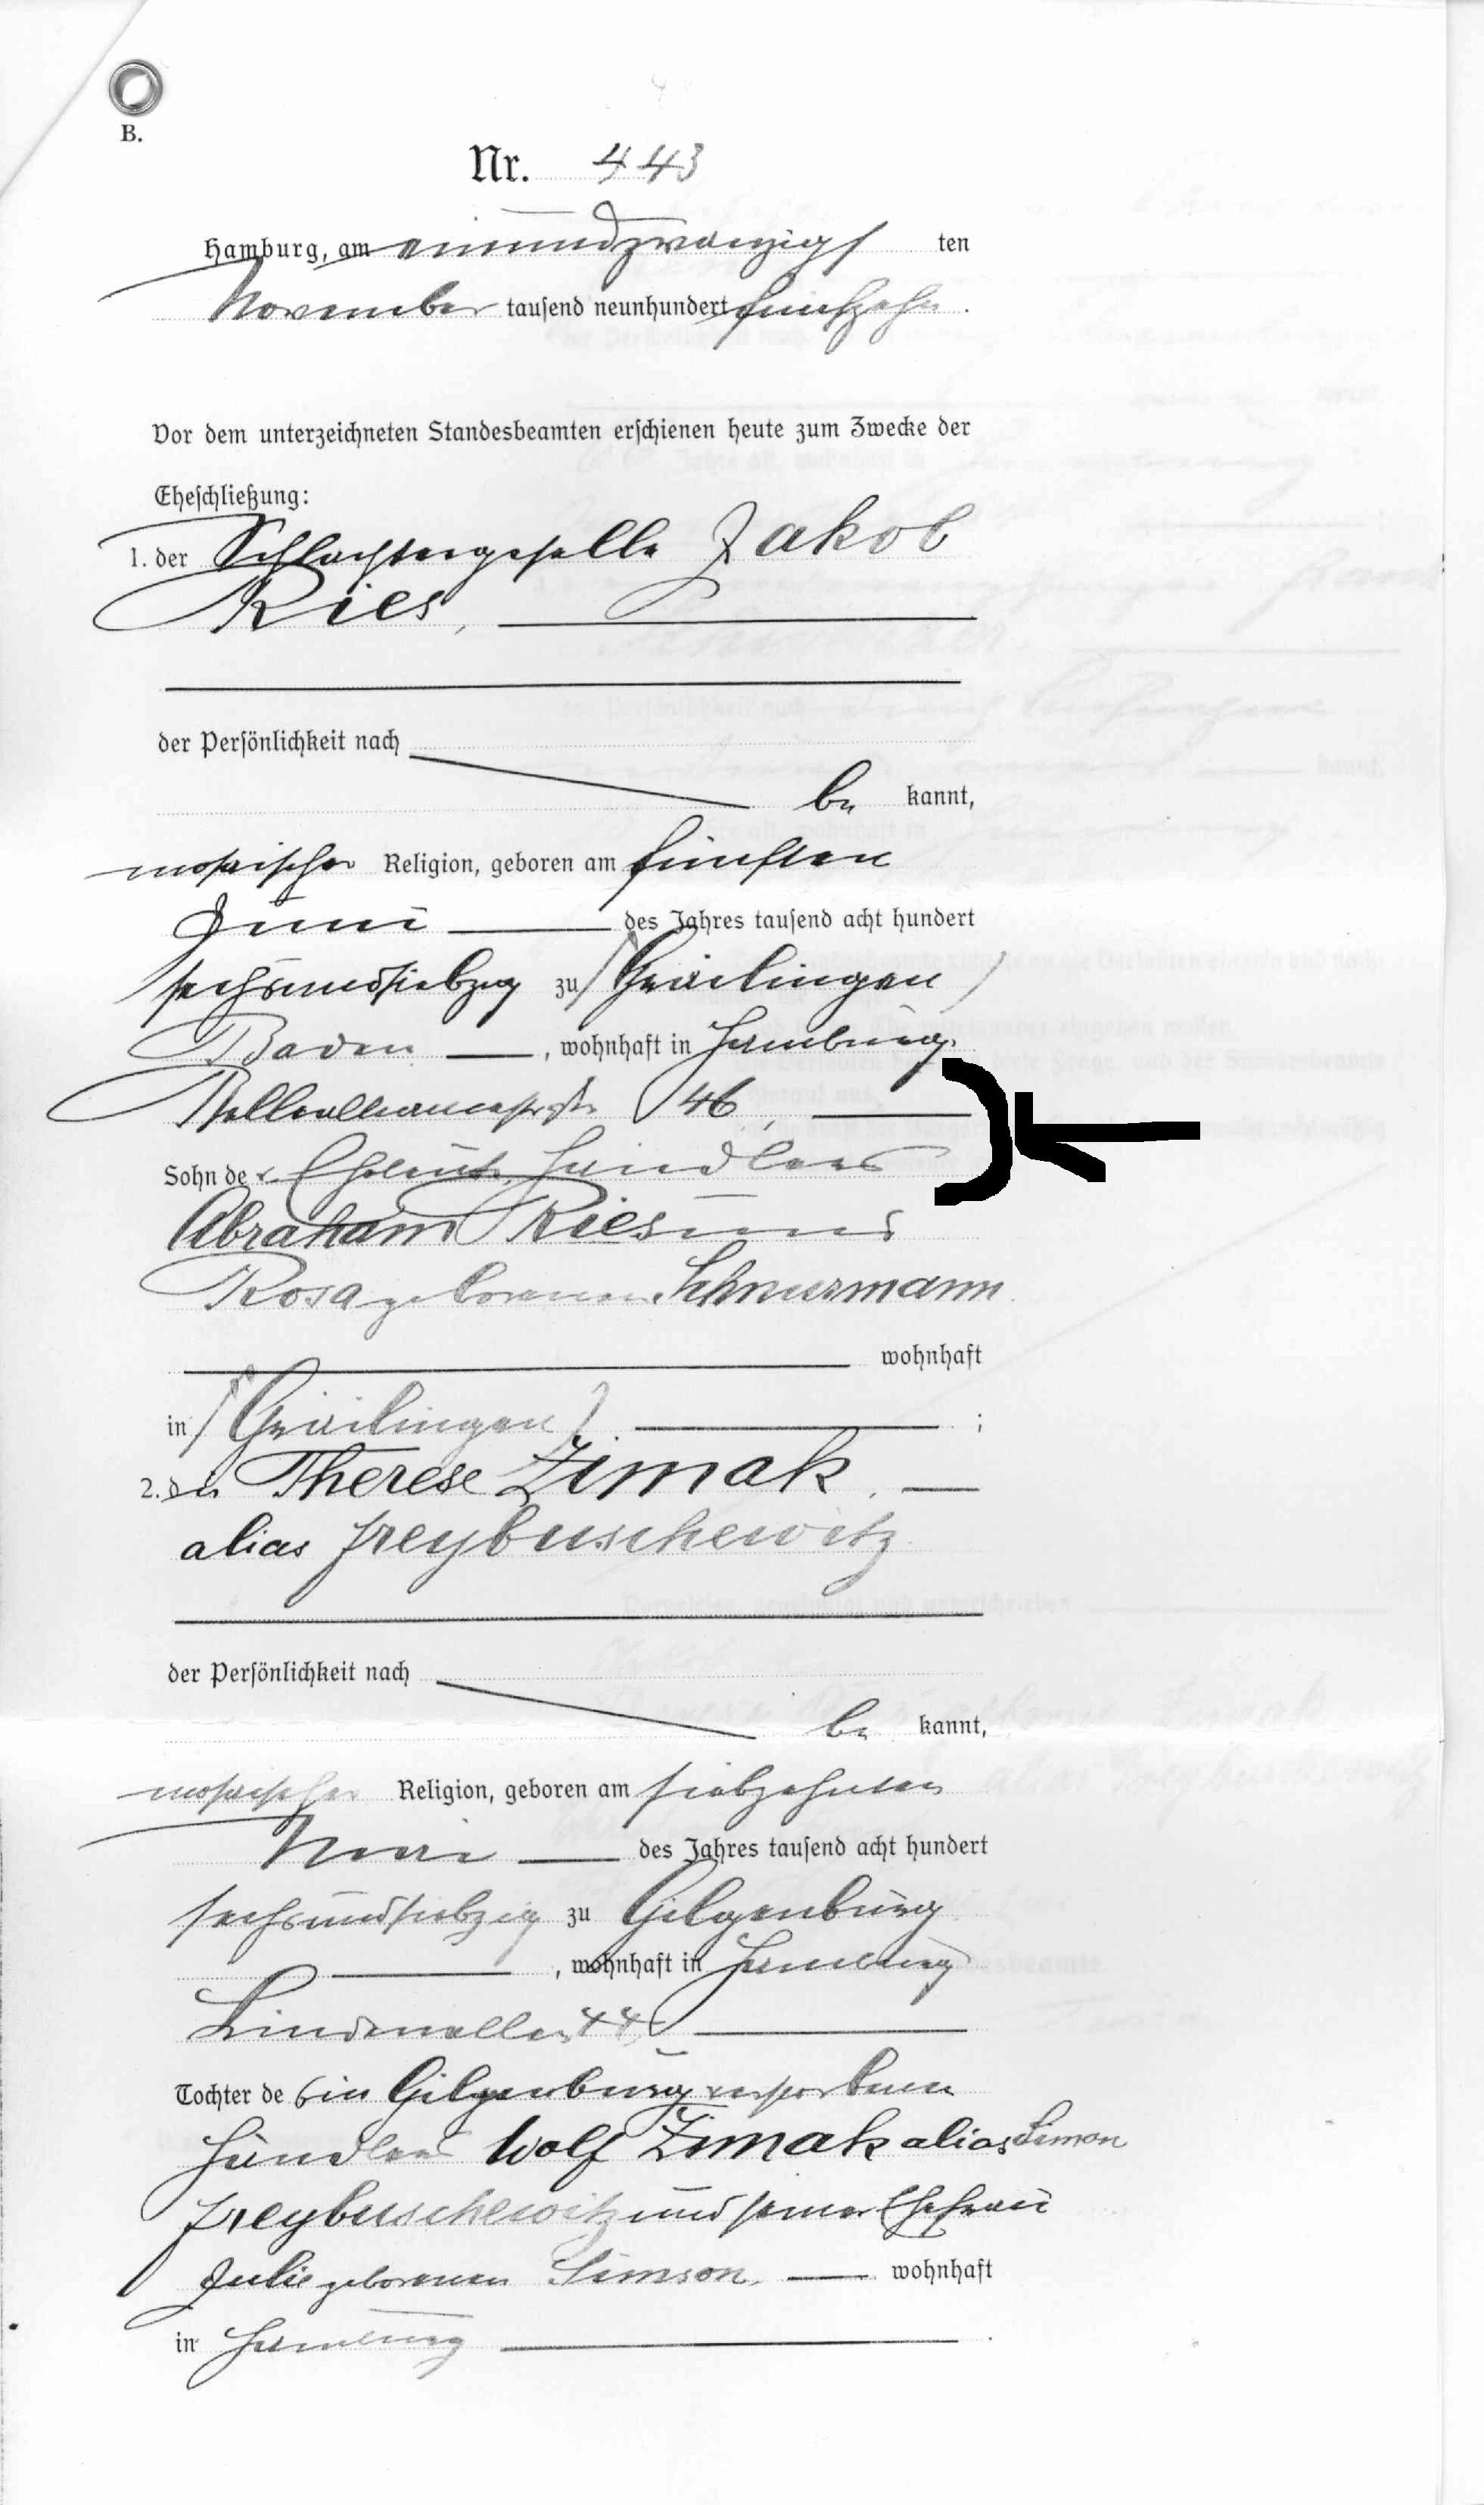 B.
Nr. 443
Hamburg, am einundzwanzigsten
November tausend neunhundert fünfzehn.
Vor dem unterzeichneten Standesbeamten erschienen heute zum Zwecke der
Eheschließung:
1. der Schlachtergeselle Jakob
Ries,
der Persönlichkeit nach
be kannt,
mosaischer Religion, geboren am fünften
Juni des Jahres tausend acht hundert
sechsundsiebzig zu Gailingen
Baden, wohnhaft in Hamburg,
Bellealliancestraße 46,
Sohn der Eheleute Händler
Abraham Ries und
Rosa geborenen Schnurmann
wohnhaft
in Gailingen;
2. die Therese Zimak,
alias Freybuschewitz
der Persönlichkeit nach
be kannt,
mosaischer Religion, geboren am siebzehnten
des Jahres tausend acht hundert
sechsundsiebzig zu Gilgenburg
, wohnhaft in Hamburg
Lindenallee 44,
Tochter des in Gilgenburg verstorbenen
Händlers Wolf Zimak alias Simon
Freybuschewitz und seiner Ehefrau
Julie geborenen Simson, wohnhaft
in Hamburg.